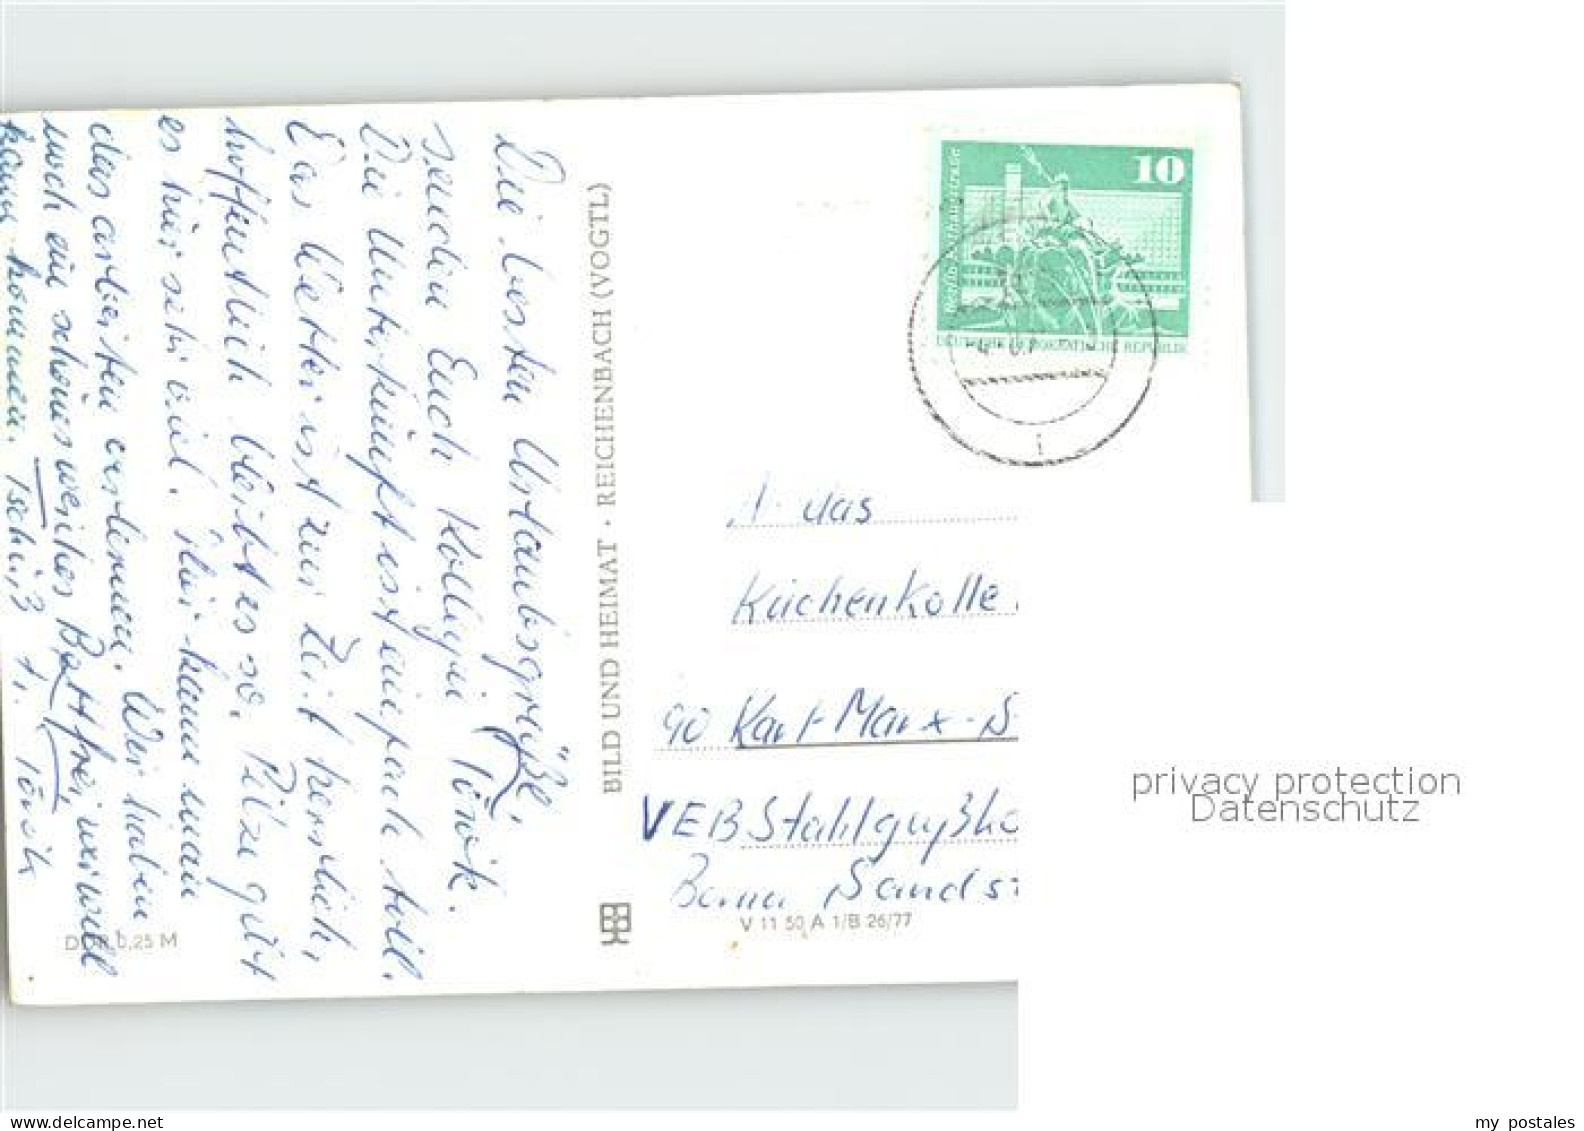 Die besten Urlaubsgrüße,
senden Euch Kollegin Türk.
Die Unterkunft ist einfach toll.
Das Wetter ist zur Zeit herrlich,
hoffentlich bleibt es so. Pilze gibt
es hier sehr viel. Hier kann man
das arbeiten verlernen. Wir haben
noch ein schönes weiches Bett frei weil
kaum kommen. Tschüß
BILD UND HEIMAT · REICHENBACH (VOGTL)
DDR 0,25 M
V 11 50 A 1/B 26/77
10
DEUTSCHE DEMOKRATISCHE REPUBLIK
das
Küchenkolle
90 Karl-Marx-S
VEB Stahlgußko
Borna Sandst
privacy protection
Datenschutz
www.delcampe.net
my postales